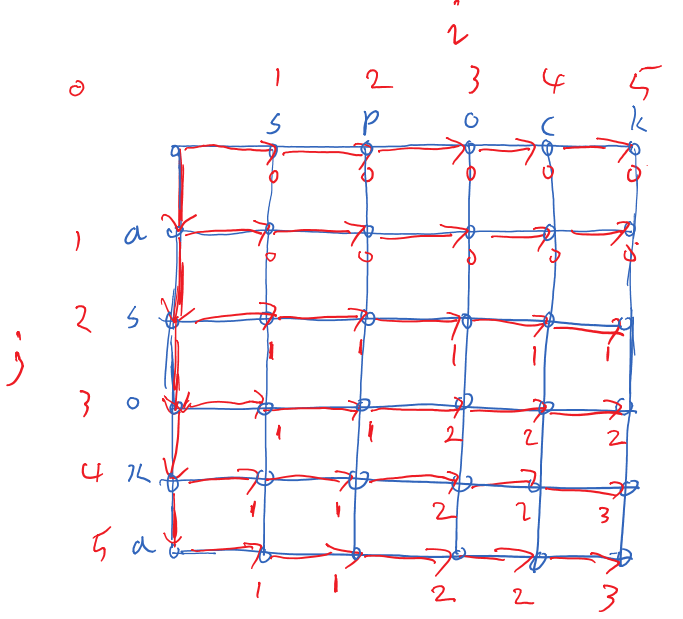 i
0 1 2 3 4 5
s p o c k
0 0 0 0 0
1 a
0 0 0 0 0
2 s
1 1 1 1 1
j
3 o
1 1 2 2 2
4 k
1 1 2 2 3
5 a
1 1 2 2 3